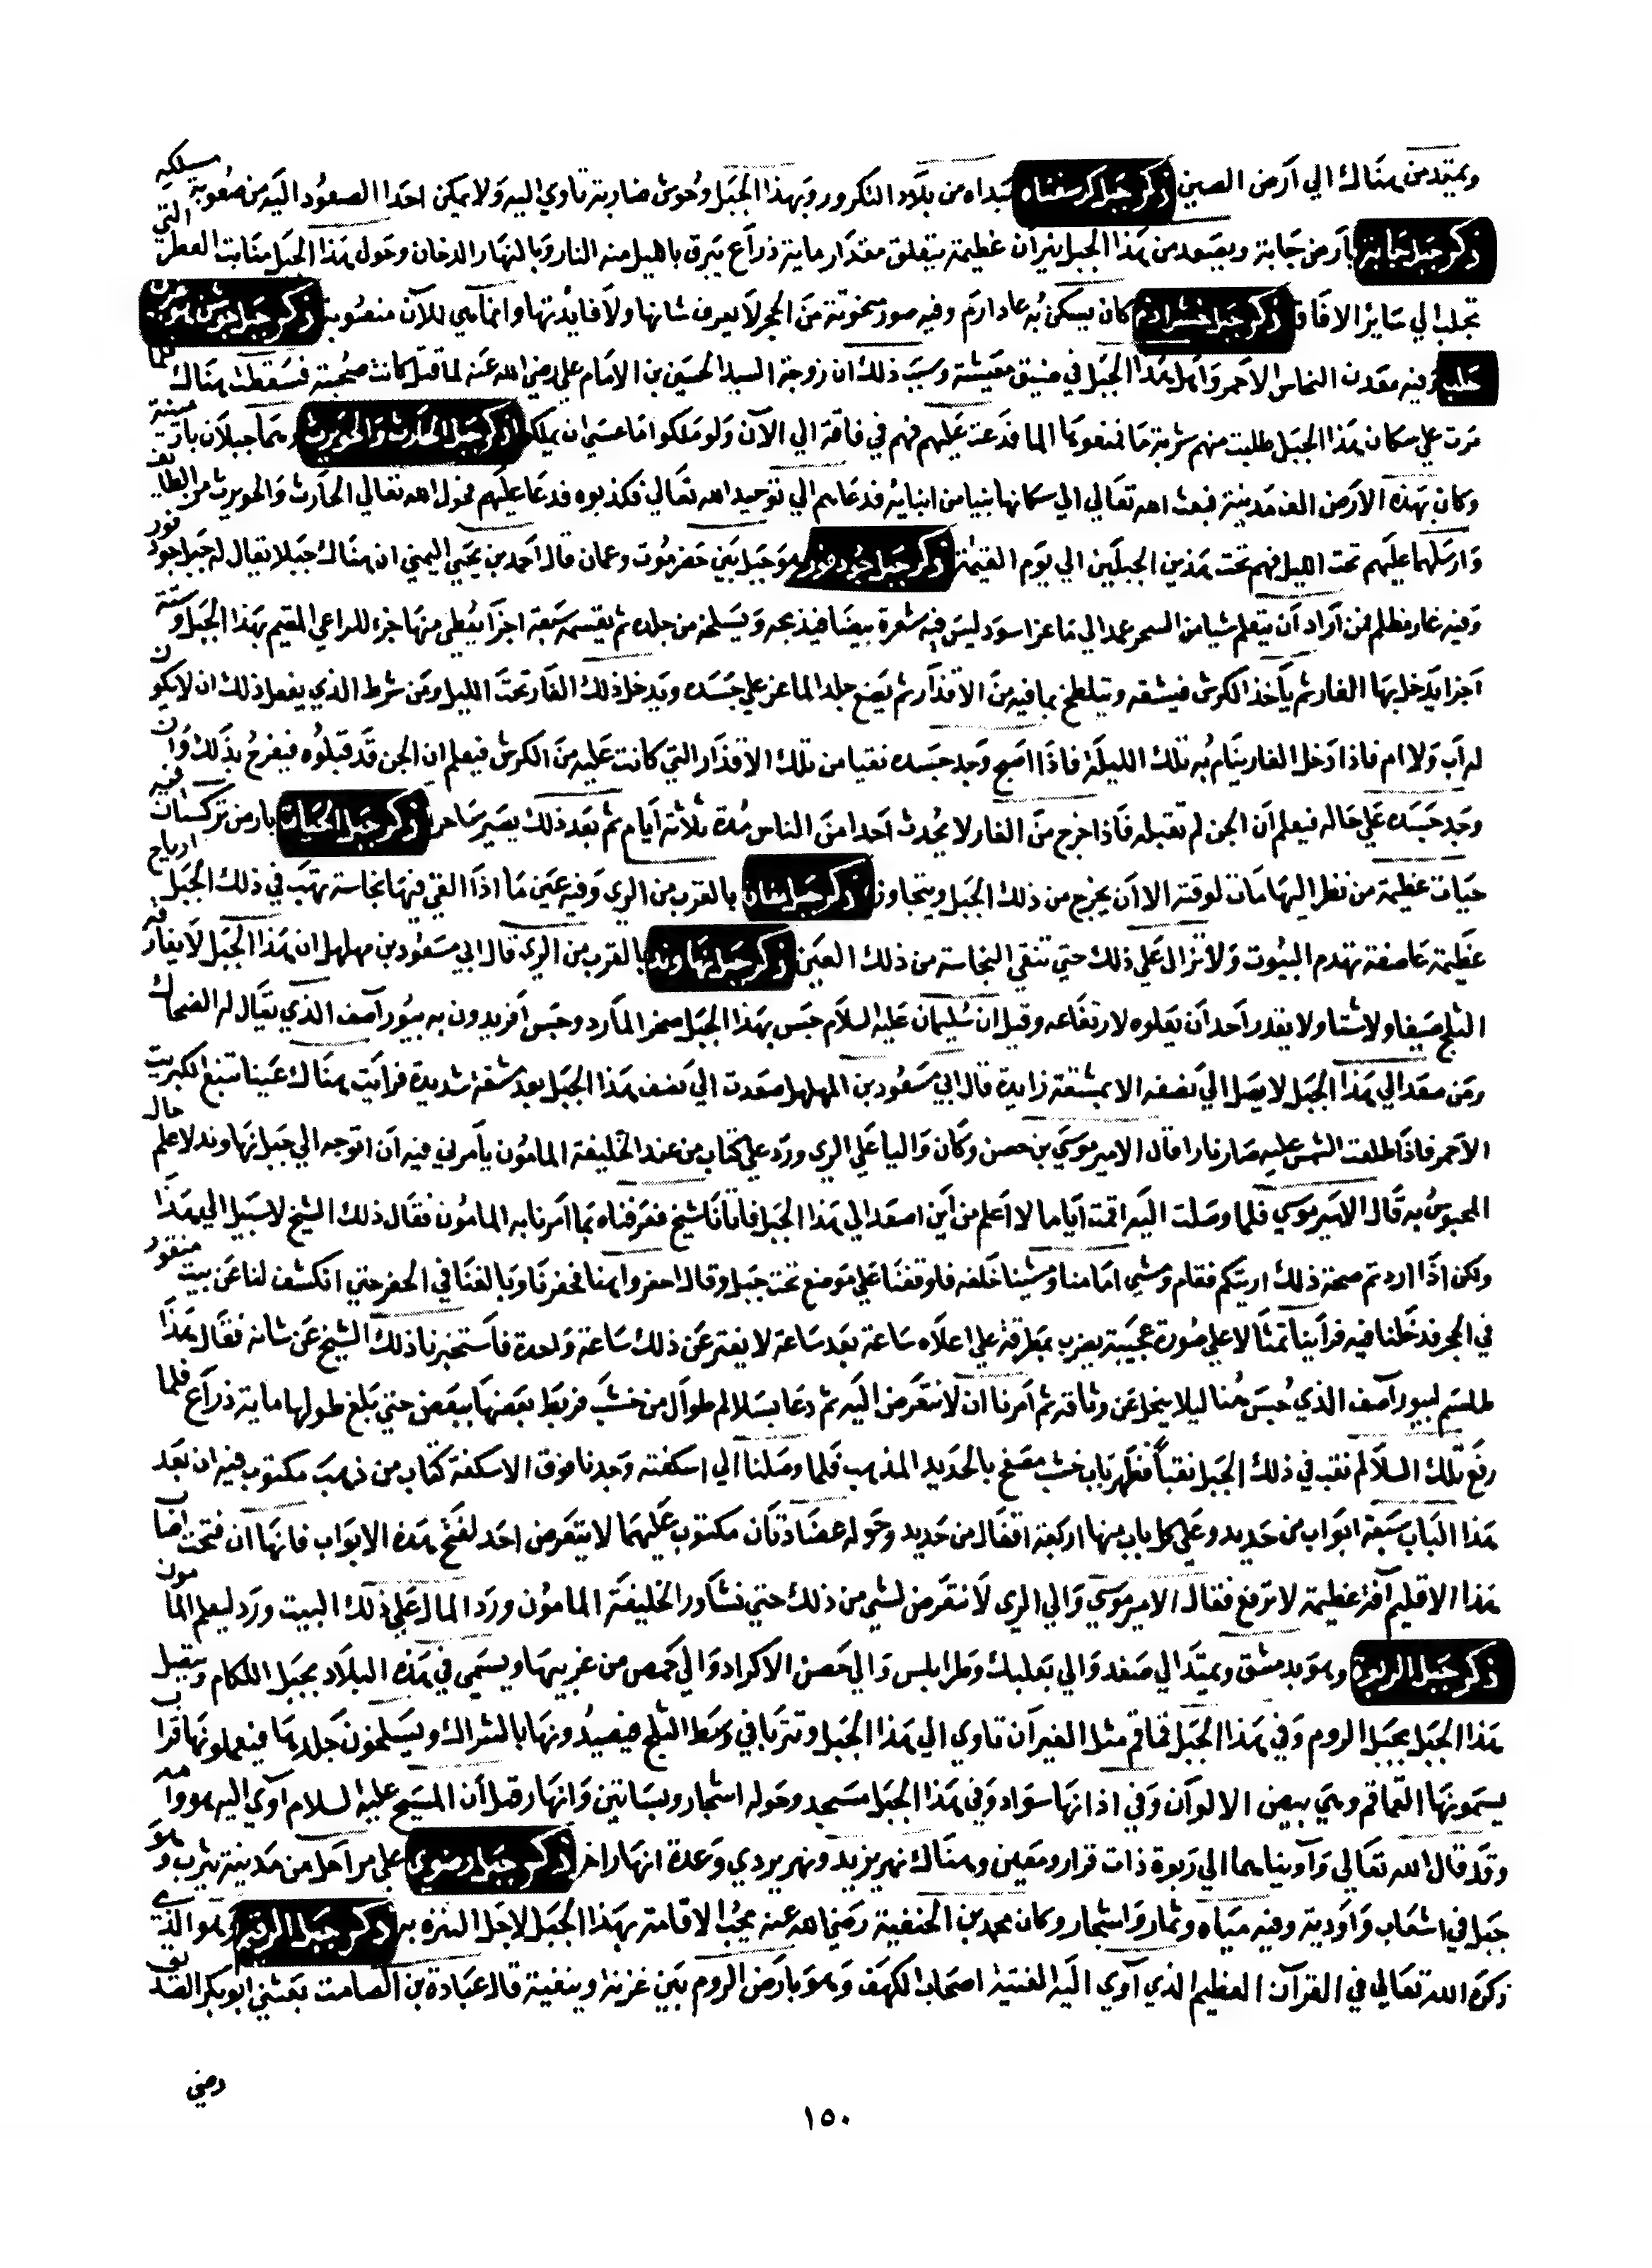 ويمتد من هناك الي ارض الصين ذكر جبل كرسفناه مبداه من بلاد التكرور وبهذا الجبل وحوش ضارية تاوي اليه ولا يمكن احدا الصعود اليه من صعوبة مسلكه
ذكر جبل جابة بارض جابة ويصعد من هذا الجبل نيران عظيمة يتعلق مقدار ماية ذراع يبرق بالليل منه النار وبالنهار الدخان وحول هذا الجبل منابت العطر التي
تجلب الي ساير الافاق ذكر جبل كان يسكن به عاد ارم وفيه صور منحوتة من الحجر لا يعرف شانها ولا فايدتها وانما هي للآن منصوبة ذكر جبل جوشن هو من
حلب وفيه معدن النحاس الاحمر واهل هذا الجبل في ضيق معيشة وسبب ذلك ان زوجة السيد الحسين بن الامام علي رضي الله عنه لما قتل كانت صحبته فسقطت هناك فلما
مرت علي سكان هذا الجبل طلبت منهم شربة ما فمنعوها الما فدعت عليهم فهم في فاقة الي الآن ولو ملكوا ما عسي ان يملكوا ذكر جبل الحارث والحويرث وهما جبلان بارمينية
وكان بهذه الارض الف مدينة فبعث الله تعالي الي سكانها نبيا من انبيائه فدعاهم الي توحيد الله تعالي فكذبوه فدعا عليهم فحول الله تعالي الحارث والحويرث من الطايف
وارسلهما عليهم تحت الليل فهم تحت هذين الجبلين الي يوم القيمة ذكر جبل جود قور هو جبل بين حضرموت وعمان قال احمد بن يحيي اليمني ان هناك جبلا يقال له جبل جود قور
وفيه غار مظلم فمن اراد ان يتعلم شيا من السحر عمد الي ماعز اسود ليس فيه شعرة بيضا فيذبحه ويسلخه من جلده ثم يقسمه سبعة اجزا يعطي منها جزء للراعي المقيم بهذا الجبل وستة
اجزا يدخل بها الغار ثم ياخذ الكرش فيشقه ويتلطخ بما فيه من الاقذار ثم يضع جلد الماعز علي جسده ويدخل ذلك الغار تحت الليل ومن شرط الذي يفعل ذلك ان لا يكون
له اب ولا ام فاذا دخل الغار ينام به تلك الليلة فاذا اصبح وجد جسده نقيا من تلك الاقذار التي كانت عليه من الكرش فيعلم ان الجن قد قبلوه فيفرح بذلك وان
وجد جسده علي حاله فيعلم ان الجن لم تقبله فاذا خرج من الغار ولا يحدث احدا من الناس مدة ثلاثة ايام ثم بعد ذلك يصير ساحرا ذكر جبل الحيات بارض تركستان فيه
حيات عظيمة من نظر اليها مات لوقته الا ان يخرج من ذلك الجبل ويتجاوز ذكر جبل بالقرب من الري وفيه عين ما اذا القي فيها نجاسة تهب في ذلك الجبل ارياح
عظيمة عاصفة تهدم البيوت ولا تزال علي ذلك حتي تنقي النجاسة من ذلك العين ذكر جبل نهاوند بالقرب من الري قال ابي مسعود بن مهلهل ان هذا الجبل لا يفارقه
الثلج صيفا ولا شتا ولا يقدر احد ان يعلوه لارتفاعه وقيل ان سليمان عليه السلام حبس بهذا الجبل صخر المارد وحبس افريدون به بيورآصف الذي يقال له الضحاك
ومن صعد الي هذا الجبل لا يصل الي نصفه الا بمشقة زايدة قال ابي مسعود بن المهلهل صعدت الي نصف هذا الجبل بعد مشقة شديدة فرايت هناك عينا تنبع الكبريت
الاحمر فاذا طلعت الشمس عليه صار نارا قال الامير موسي بن حصن وكان واليا علي الري ورد علي كتاب من عند الخليفة المامون يامرني فيه ان اتوجه الي جبل نهاوند لاعلم حال
المحبوس به قال الامير موسي فلما وصلت اليه اقمت اياما لا اعلم من اين اصعد الي هذا الجبل فاتانا شيخ فعرفناه بما امرنا به المامون فقال ذلك الشيخ لا سبيل الي هذا
ولكن اذا اردتم صحة ذلك اريتكم فقام ومشي امامنا ومشينا خلفه فاوقفنا علي موضع تحت جبل وقال احفروا هنا فحفرنا وبالغنا في الحفر حتي انكشف لنا عن بيت منقور
في الحجر فدخلنا فيه فراينا تمثالا علي صورة عجيبة يضرب بمطرقة علي اعلاه ساعة بعد ساعة لا يفتر عن ذلك ساعة واحدة فاستخبرنا ذلك الشيخ عن شانه فقال هذا
طلسم لبيورآصف الذي حبس هنا ليلا ينحل عن وثاقه ثم امرنا ان لا نتعرض اليه ثم دعا بسلالم طوال من خشب فربط بعضها ببعض حتي بلغ طولها ماية ذراع فلما
رفع تلك السلالم نقب في ذلك الجبل نقباً فظهر باب خشب مصفح بالحديد المذهب فلما وصلنا الي اسكفته وجدنا فوق الاسكفة كتاب من ذهب مكتوب فيه ان بعد
هذا الباب سبعة ابواب من حديد وعلي كل باب منها اربعة اقفال من حديد وحوله عضادتان مكتوب عليهما لا يتعرض احد لفتح هذه الابواب فانها ان فتحت اصاب
هذا الاقليم آفة عظيمة لا ترفع فقال الامير موسي والي الري لا نتعرض لشي من ذلك حتي نشاور الخليفة المامون ورد المال علي ذلك البيت ورد ليعلم المامون
ذكر جبل الربوة وهو بدمشق ويمتد الي صفد والي بعلبك وطرابلس والي حصن الاكراد والي حمص من غربيها ويسمي في هذه البلاد بجبل اللكام ويتصل
هذا الجبل بجبل الروم وفي هذا الجبل قماقم مثل الفيران تاوي الي هذا الجبل وتتربا في وسط الثلج فيصيدونها بالشراك ويسلخون جلدها فيعملونها قراب
يسمونها القماقم وهي بيض الالوان وفي اذانها سواد وفي هذا الجبل مسجد وحوله اشجار وبساتين وانهار وقيل ان المسيح عليه السلام آوي اليه هو وامه
وقد قال الله تعالي وآويناهما الي ربوة ذات قرار ومعين وهناك نهر يزيد ونهر بردي وعدة انهار اخر ذكر جبل رضوي علي مراحل من مدينة يثرب وهلا
جبل في اشعاب واودية وفيه مياه وثمار واشجار وكان محمد بن الحنفية رضي الله عنه يحب الاقامة بهذا الجبل لاجل التنزه به ذكر جبل الرقيم وهو الذي
ذكره الله تعالي في القرآن العظيم الذي آوي اليه الفتية اصحاب الكهف وهو بارض الروم بين غزية وينقية قال عبادة بن الصامت بعثني ابو بكر الصديق
رضي
١٥٠